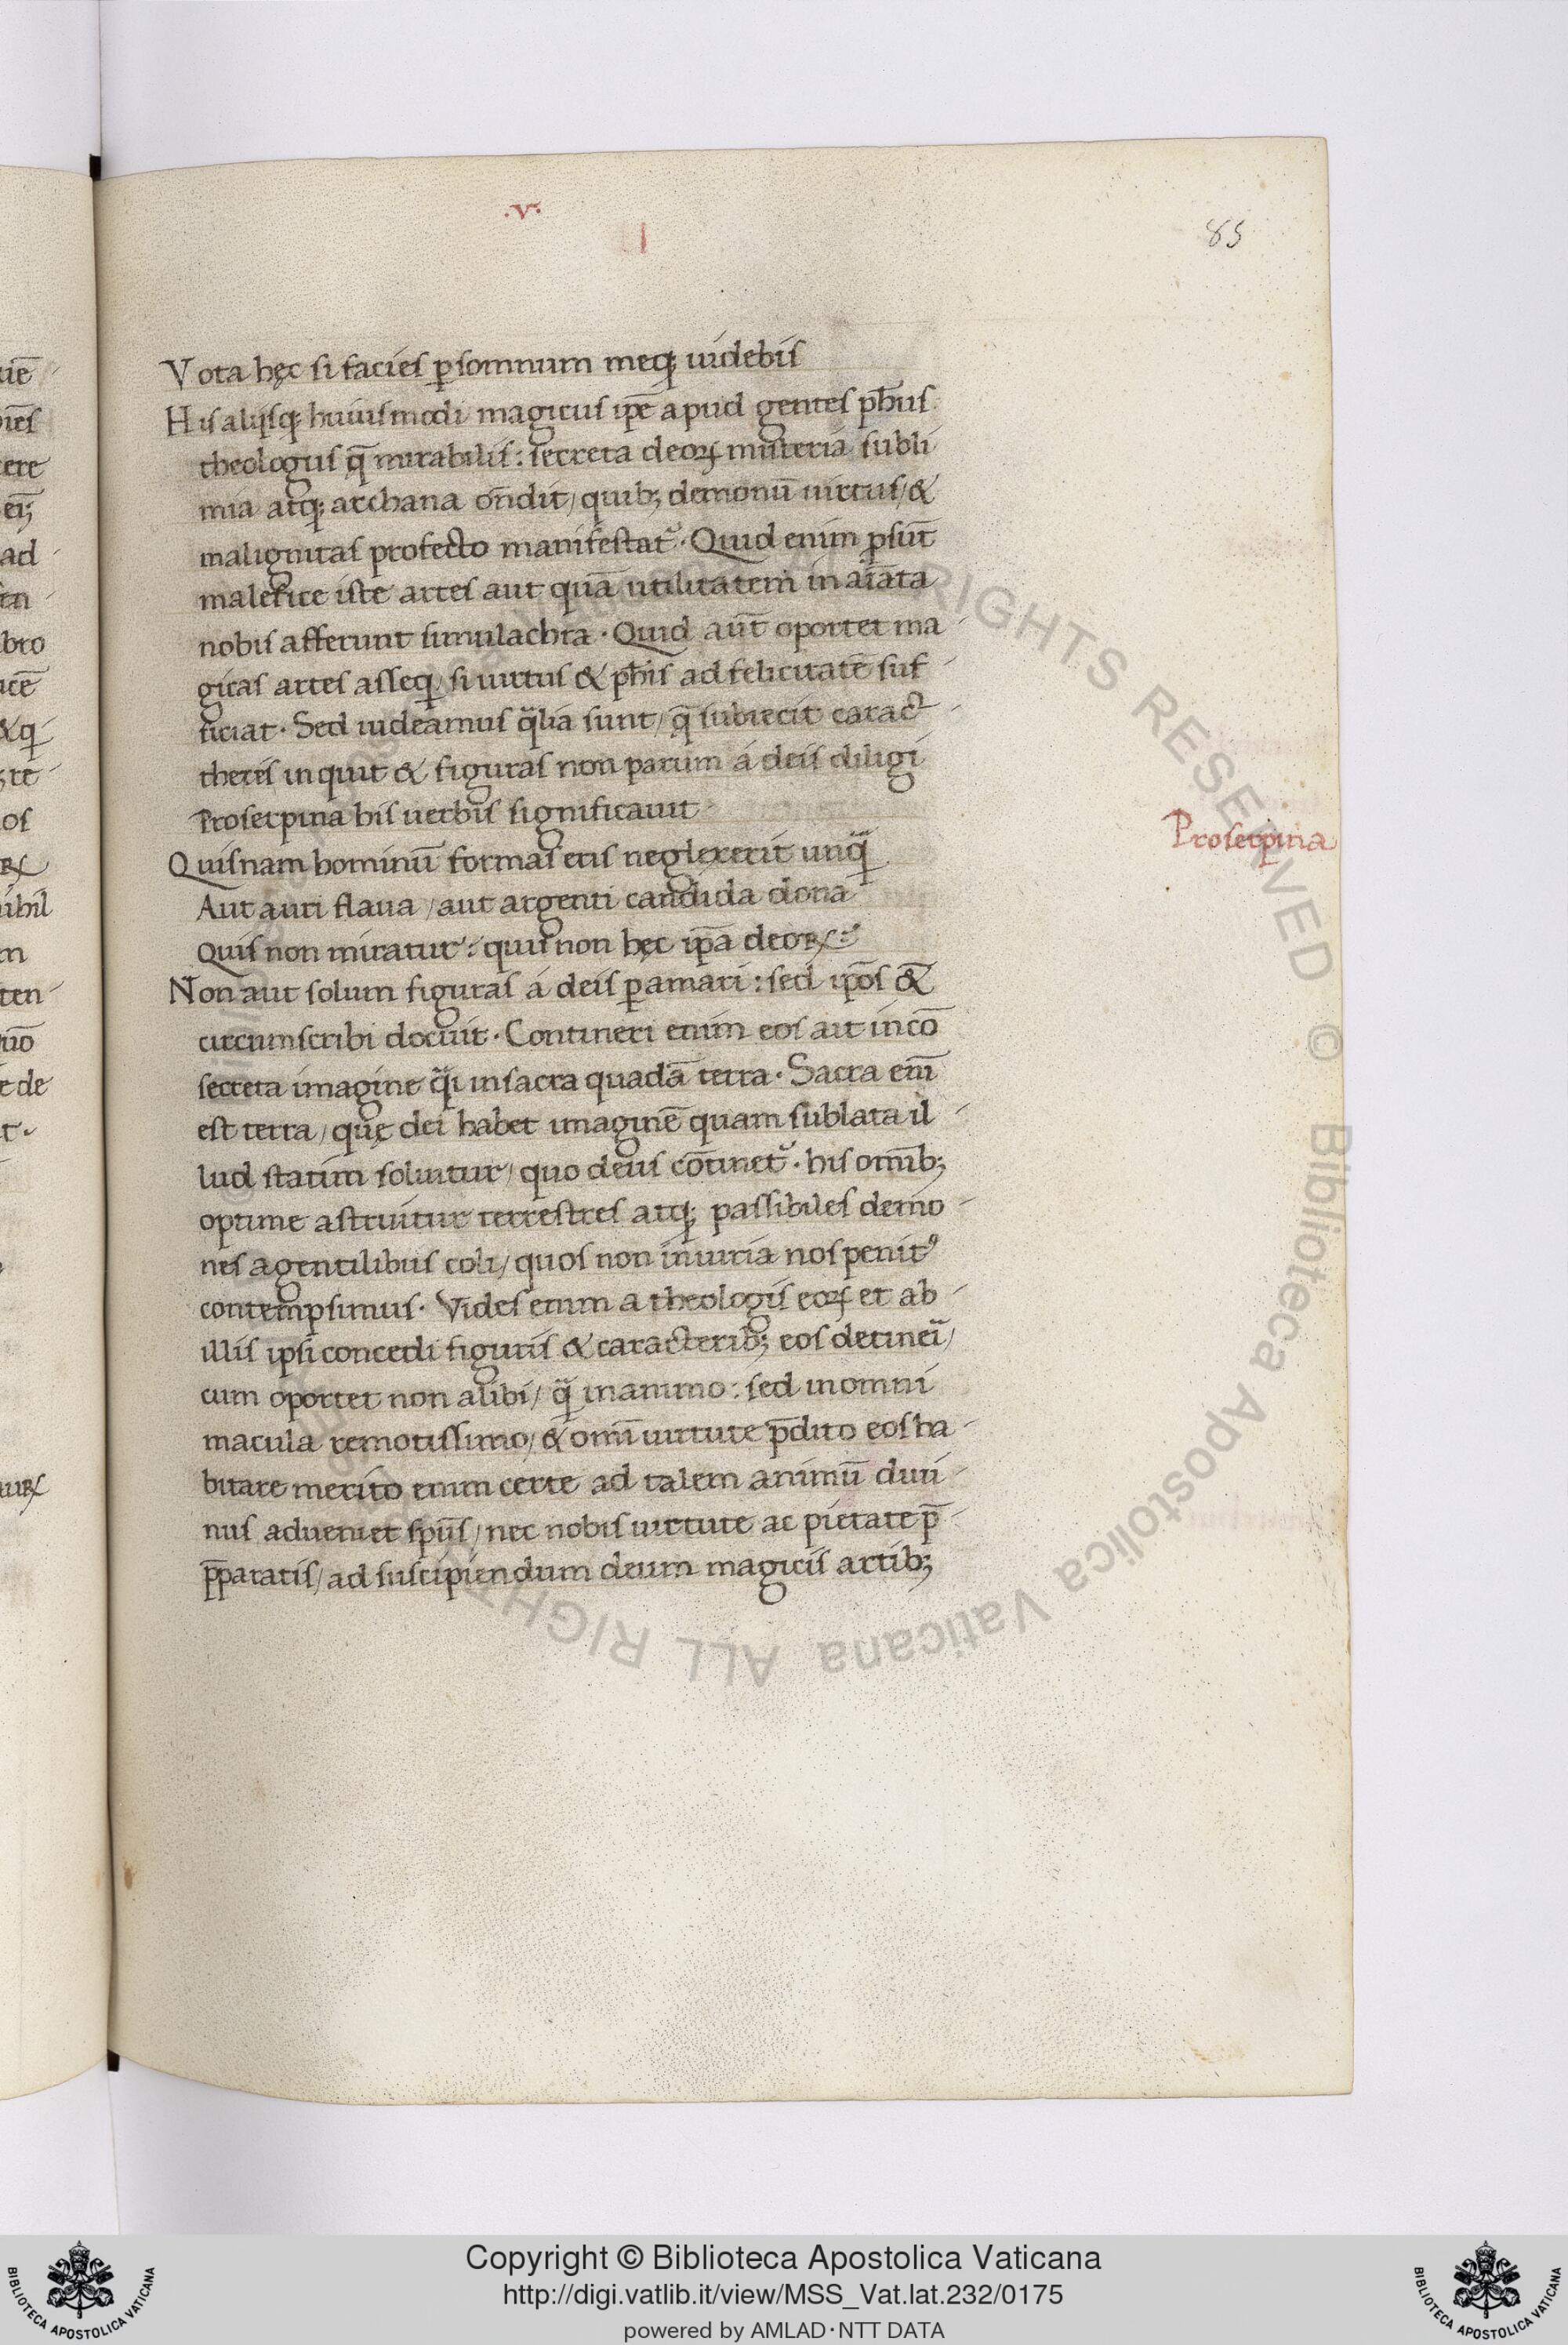 ·v·
85
Vota hęc si facies ꝑ somnum meqꝫ uidebis
His alijsqꝫ huiusmodi magicus ip̄e apud gentes ph̄us
theologus q̄ mirabilis: secreta deoꝝ misteria subli
mia atqꝫ archana on̄dit/ quibꝫ demonū uirtus/ &
malignitas profecto manifestat᷑· Quid enim ꝓsūt
malefice iste artes aut quā utilitatem in aīata
nobis afferunt simulachra· Quid aūt oportet ma-
gicas artes asseq̨/ si uirtus & ph̄is ad felicitatē suf-
ficiat· Sed uideamus q̈lia sunt/ q̄ subiecit caract-
theres inquit & figuras non parum á deis diligi
Proserpina his uerbis significauit
Proserpina
Quisnam hominū formas eris neglexerit unq̈
Aut auri flaua/ aut argenti candida dona
Quis non miratur: quis non hęc ip̄a deoꝝ:
Non aut solum figuras á deis ꝑamari: sed ip̄os &
circumscribi docuit· Contineri enim eos ait in cō
secreta imagine q̈i in sacra quadā terra· Sacra eni᷑
est terra/ quę dei habet imaginē quam sublata il-
lud statim soluitur/ quo deus cōtinet᷑· his om̄ibꝫ
optime astruitur terrestres atqꝫ passibiles demo-
nes a gentilibus coli/ quos non iniuria nos penitꝰ
contempsimus· Vides enim a theologis eoꝝ et ab-
illis ipsi concedi figuris & caracteribꝫ eos detineri᷑/
cum oportet non alibi/ q̈ in animo: sed in omni
macula remotissimo/ & om̄i uirtute p̄dito eos ha-
bitare merito enim certe ad talem animū diui-
nus adueniet sp̄us/ nec nobis uirtute ac pietate p̄-
p̄paratis/ ad suscipiendum deum magicis artibꝫ
Copyright © Biblioteca Apostolica Vaticana
http://digi.vatlib.it/view/MSS_Vat.lat.232/0175
powered by AMLAD·NTT DATA